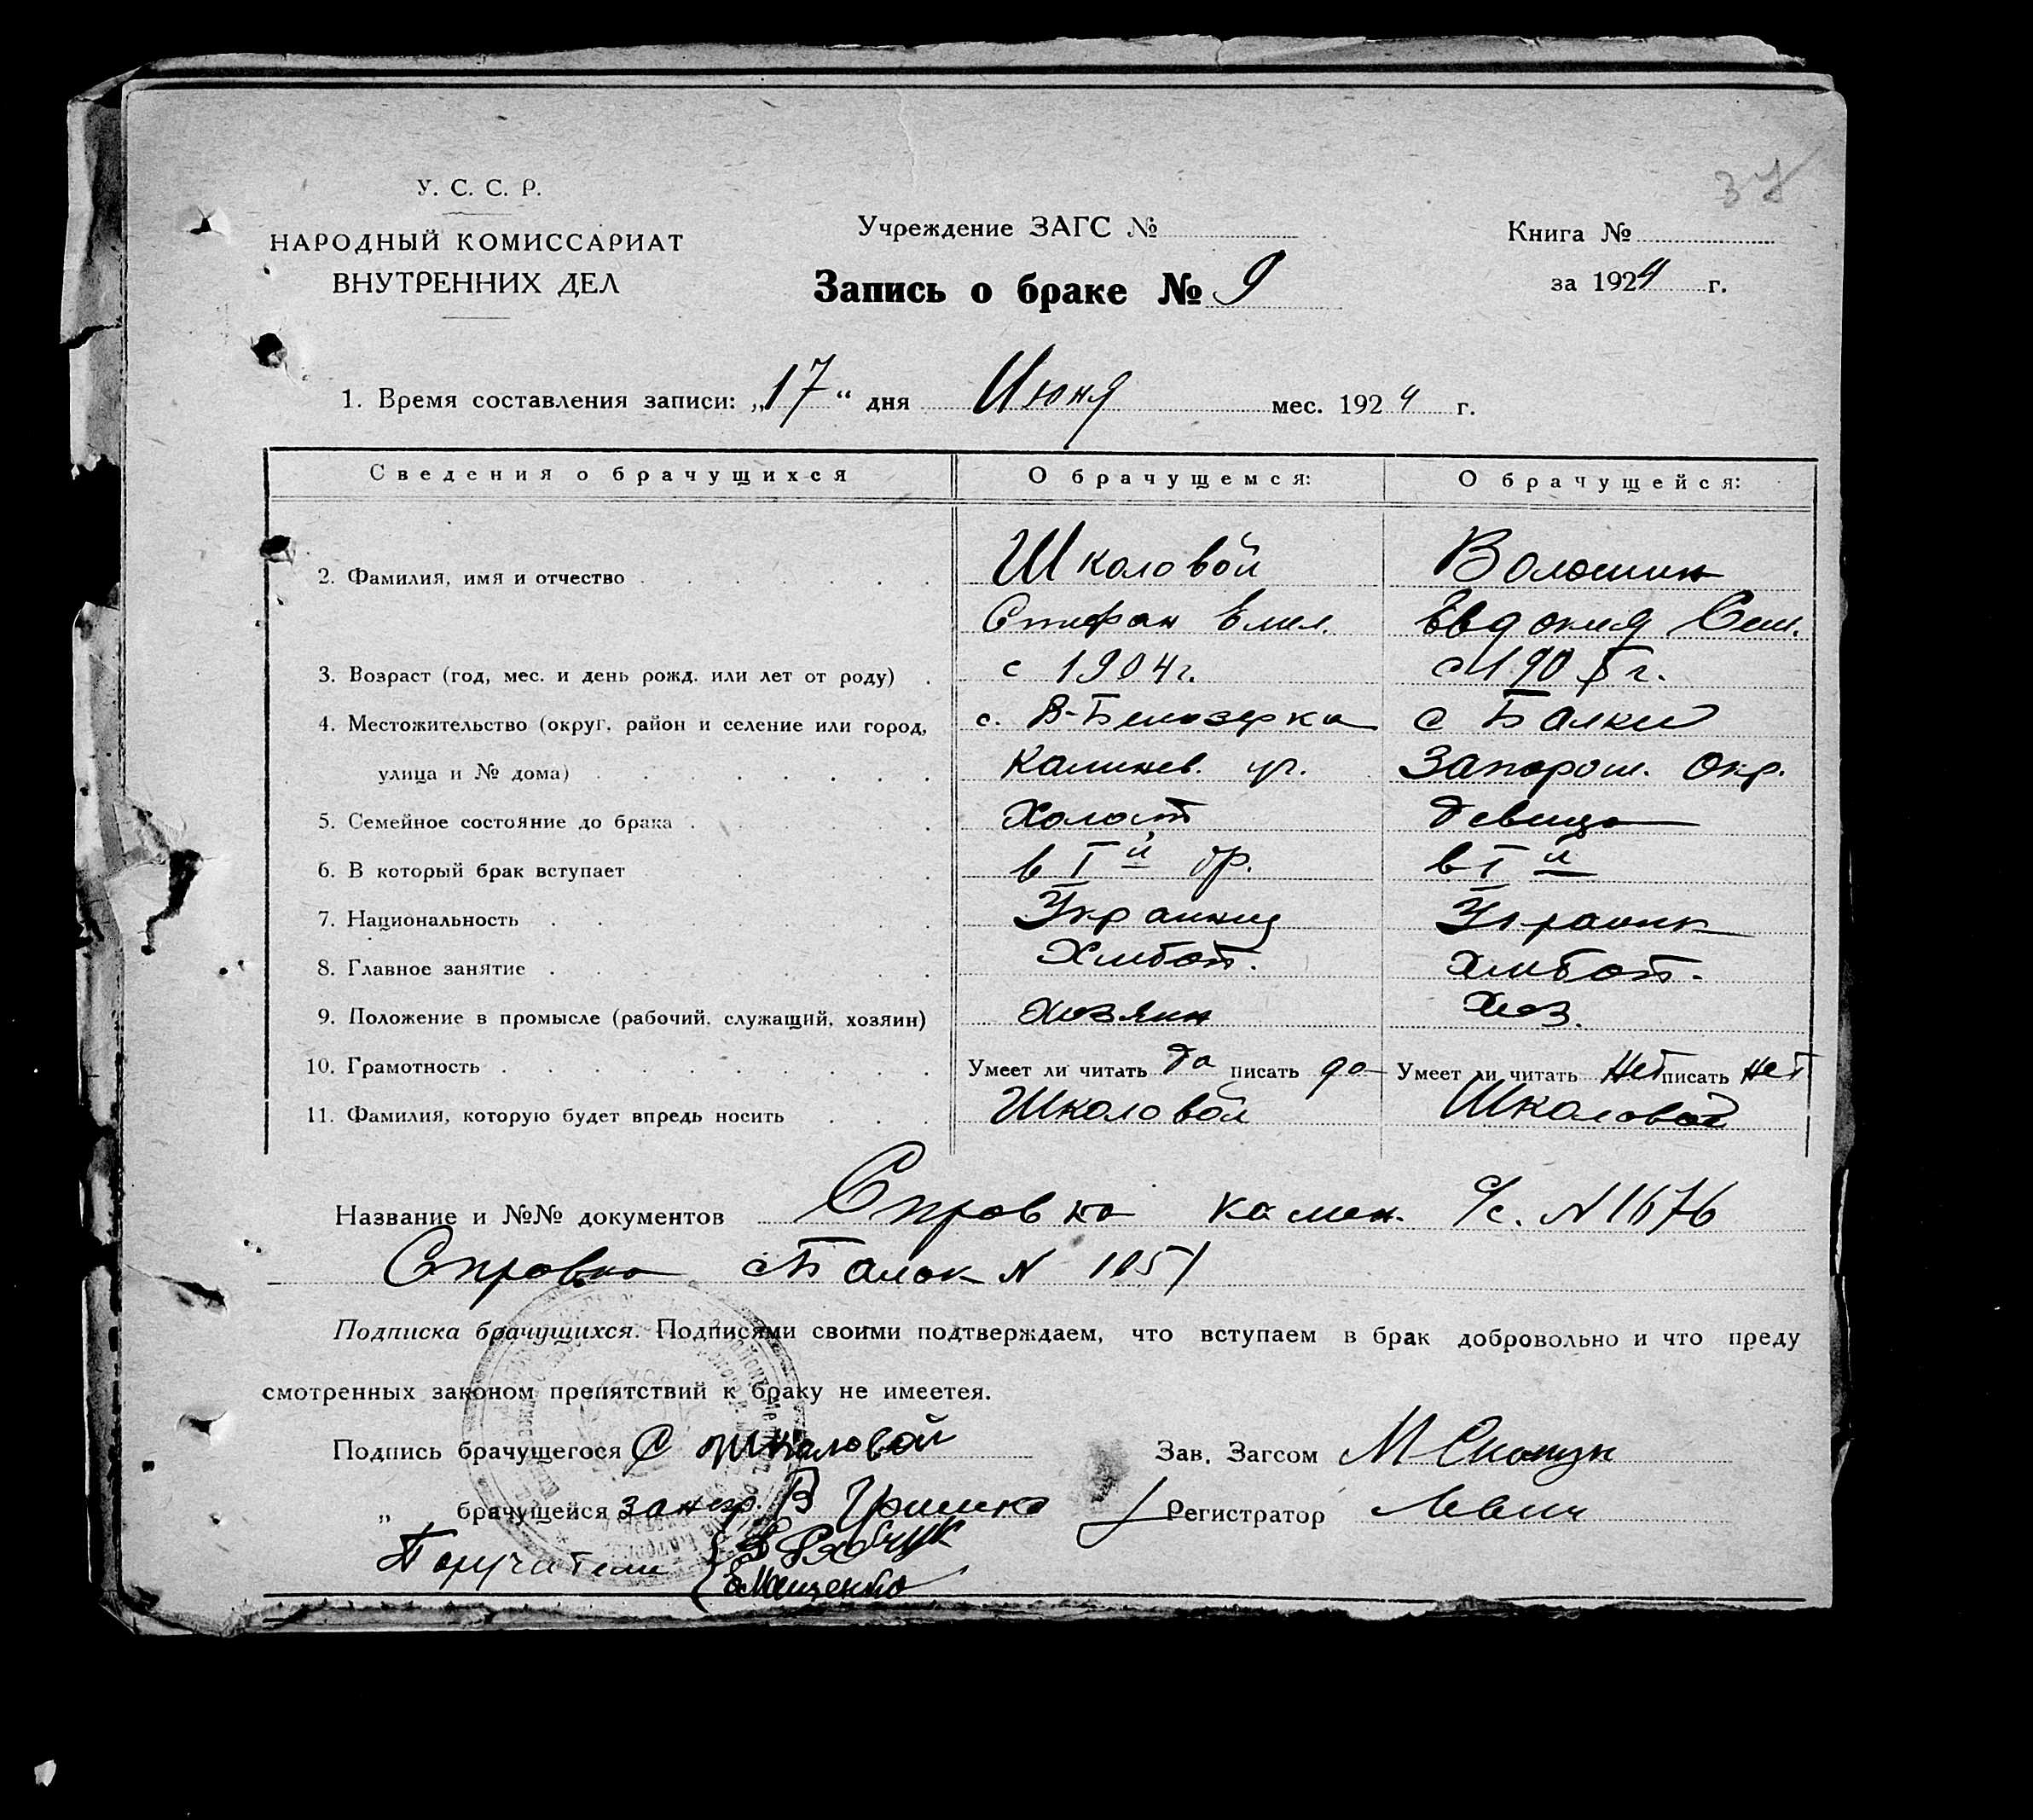 37
У. С. С. Р.
НАРОДНЫЙ КОМИССАРИАТ
ВНУТРЕННИХ ДЕЛ
Учреждение ЗАГС №
Запись о браке № 9
Книга №
за 1924 г.
1. Время составления записи: „17“ дня Июня мес. 1924 г.
Сведения о брачущихся О брачущемся: О брачущейся:
2. Фамилия, имя и отчество Школовой Волошин
Стефан Емел. Евдокия Сем.
3. Возраст (год, мес. и день рожд. или лет от роду) с 1904 г. с 1905 г.
4. Местожительство (округ, район и селение или город, с. В-Белозерка с Балки
улица и № дома) Запорож. Окр.
5. Семейное состояние до брака Холост девица
6. В который брак вступает в I й бр. в I й
7. Национальность Украинец Украинк
8. Главное занятие Хлебот. Хлебот.
9. Положение в промысле (рабочий, служащий, хозяин) хозяин хоз.
10. Грамотность Умеет ли читать да писать да Умеет ли читать нет писать нет
11. Фамилия, которую будет впредь носить Школовой Школовой
Название и №№ документов Справка камен. с/с. N 1676
Справка с Балок N 1051
Подписка брачущихся. Подписями своими подтверждаем, что вступаем в брак добровольно и что преду
смотренных законом препятствий к браку не имеетея.
Подпись брачущегося С Школовой Зав. Загсом М
„ брачущейся за негр. В Гришко Регистратор Левич
Поручатели
Е Мащенко